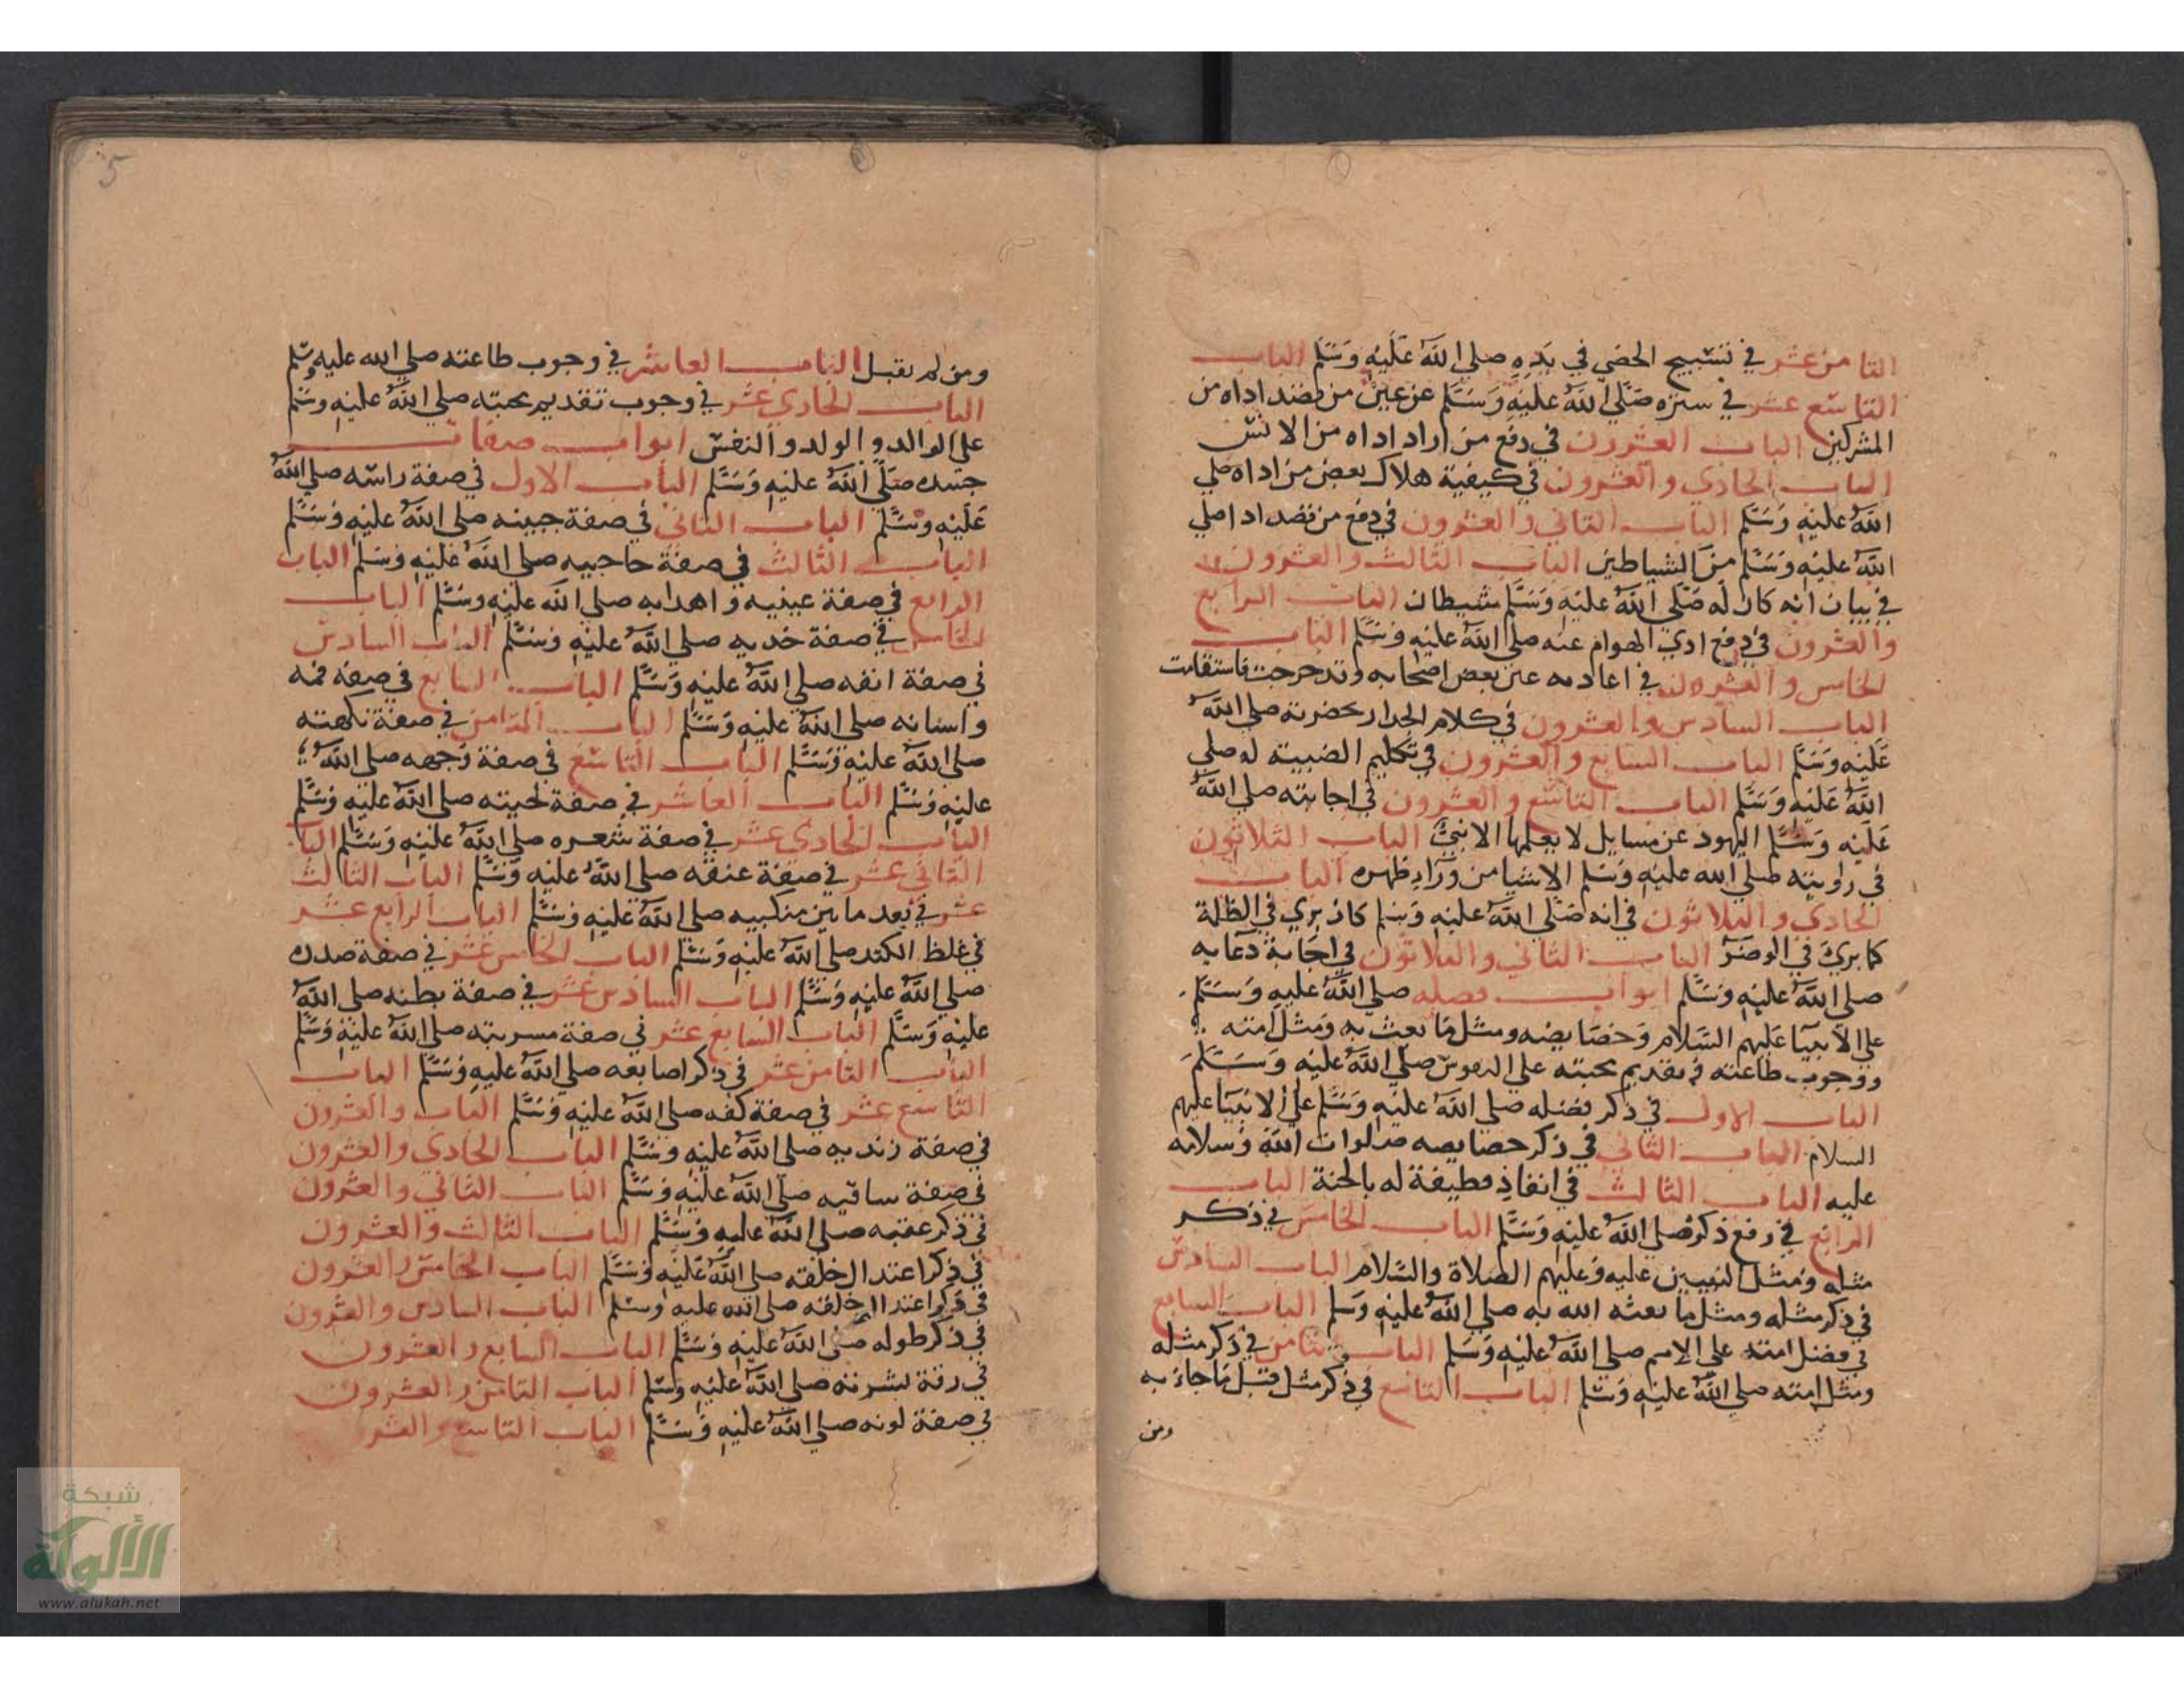 الثامن عشر في تسبيح الحصى في يده صلى الله عليه وسلم الباب
التاسع عشر في ستره صلى الله عليه وسلم عن عين من قصد اداه من
المشركين الباب العشرون في دفع من اراد اداه من الانس
الباب الحادي والعشرون في كيفية هلاك بعض من اداه صلي
الله عليه وسلم الباب الثاني والعشرون في دفع من قصد اداه صلي
الله عليه وسلم من الشياطين الباب الثالث والعشرون
في بيان انه كان له صلى الله عليه وسلم شيطان الباب الرابع
والعشرون في دفع ادي الهوام عنه صلى الله عليه وسلم الباب
الخامس والعشرون في اعادته عين بعض اصحابه وقد خرجت فاستقامت
الباب السادس والعشرون في كلام الجدار بحضرته صلى الله
عليه وسلم الباب السابع والعشرون في تكليم الضبية له صلي
الله عليه وسلم الباب التاسع والعشرون في اجابته صلى الله
عليه وسلم اليهود عن مسايل لا يعلمها الا نبي الباب الثلاثون
في راويته صلي الله عليه وسلم الاشيا من وراء ظهره الباب
الحادي والثلاثون في انه صلى الله عليه وسلم كان يري في الظلمة
كما يري في الضوء الباب الثاني والثلاثون في اجابة دعايه
صلى الله عليه وسلم ابواب فضله صلى الله عليه وسلم
علي الانبيا عليهم السلام وخصايصه ومثل ما بعث به ومثل امته
ووجوب طاعته وتقديم محبته علي النفوس صلى الله عليه وسلم
الباب الاول في ذكر فضله صلى الله عليه وسلم علي الانبيا عليهم
السلام الباب الثاني في ذكر خصايصه صلوات الله وسلامه
عليه الباب الثالث في انفاذ قطيفة له بالجنة الباب
الرابع في رفع ذكره صلى الله عليه وسلم الباب الخامس في ذكر
مثله ومثل النبيين عليه وعليهم الصلاة والسلام الباب السادس
في ذكر مثله ومثل ما بعثه الله به صلى الله عليه وسلم الباب السابع
في فضل امته علي الامم صلى الله عليه وسلم الباب الثامن في ذكر مثله
ومثل امته صلى الله عليه وسلم الباب التاسع في ذكر مثل من قبل ما جاء به
ومن
5
ومن لم يقبل الباب العاشر في وجوب طاعته صلي الله عليه وسلم
الباب الحادي عشر في وجوب تقديم محبته صلي الله عليه وسلم
على الوالد والولد والنفس ابواب صفات
جسده صلى الله عليه وسلم الباب الاول في صفة راسه صلي الله
عليه وسلم الباب الثاني في صفة جبينه صلى الله عليه وسلم
الباب الثالث في صفة حاجبيه صلى الله عليه وسلم الباب
الرابع في صفة عينيه واهدابه صلي الله عليه وسلم الباب
الخامس في صفة خديه صلي الله عليه وسلم الباب السادس
في صفة انفه صلي الله عليه وسلم الباب السابع في صفة فمه
واسنانه صلى الله عليه وسلم الباب الثامن في صفة نكهته
صلى الله عليه وسلم الباب التاسع في صفة وجهه صلي الله
عليه وسلم الباب العاشر في صفة لحيته صلي الله عليه وسلم
الباب الحادي عشر في صفة شعره صلي الله عليه وسلم البا
الثاني عشر في صفة عنقه صلي الله عليه وسلم الباب الثالث
عشر في بعد ما بين منكبيه صلى الله عليه وسلم الباب الرابع عشر
في غلظ الكتد صلى الله عليه وسلم الباب الخامس عشر في صفة صدره
صلي الله عليه وسلم الباب السادس عشر في صفة بطنه صلى الله
عليه وسلم الباب السابع عشر في صفة مسربته صلي الله عليه وسلم
الباب الثامن عشر في ذكر اصابعه صلي الله عليه وسلم الباب
التاسع عشر في صفة كفه صلى الله عليه وسلم الباب والعشرون
في صفة زنديه صلي الله عليه وسلم الباب الحادي والعشرون
في صفة ساقيه صلي الله عليه وسلم الباب الثاني والعشرون
في ذكر عقبه صلي الله عليه وسلم الباب الثالث والعشرون
في ذكر اعتدال خلقه صلي الله عليه وسلم الباب الخامس والعشرون
في ذكر اعتدال خلقه صلي الله عليه وسلم الباب السادس والعشرون
في ذكر طوله صلى الله عليه وسلم الباب السابع والعشرون
في رقة بشرته صلي الله عليه وسلم الباب الثامن والعشرون
في صفة لونه صلي الله عليه وسلم الباب التاسع والعشر
شبكة
الألوكة
www.alukah.net